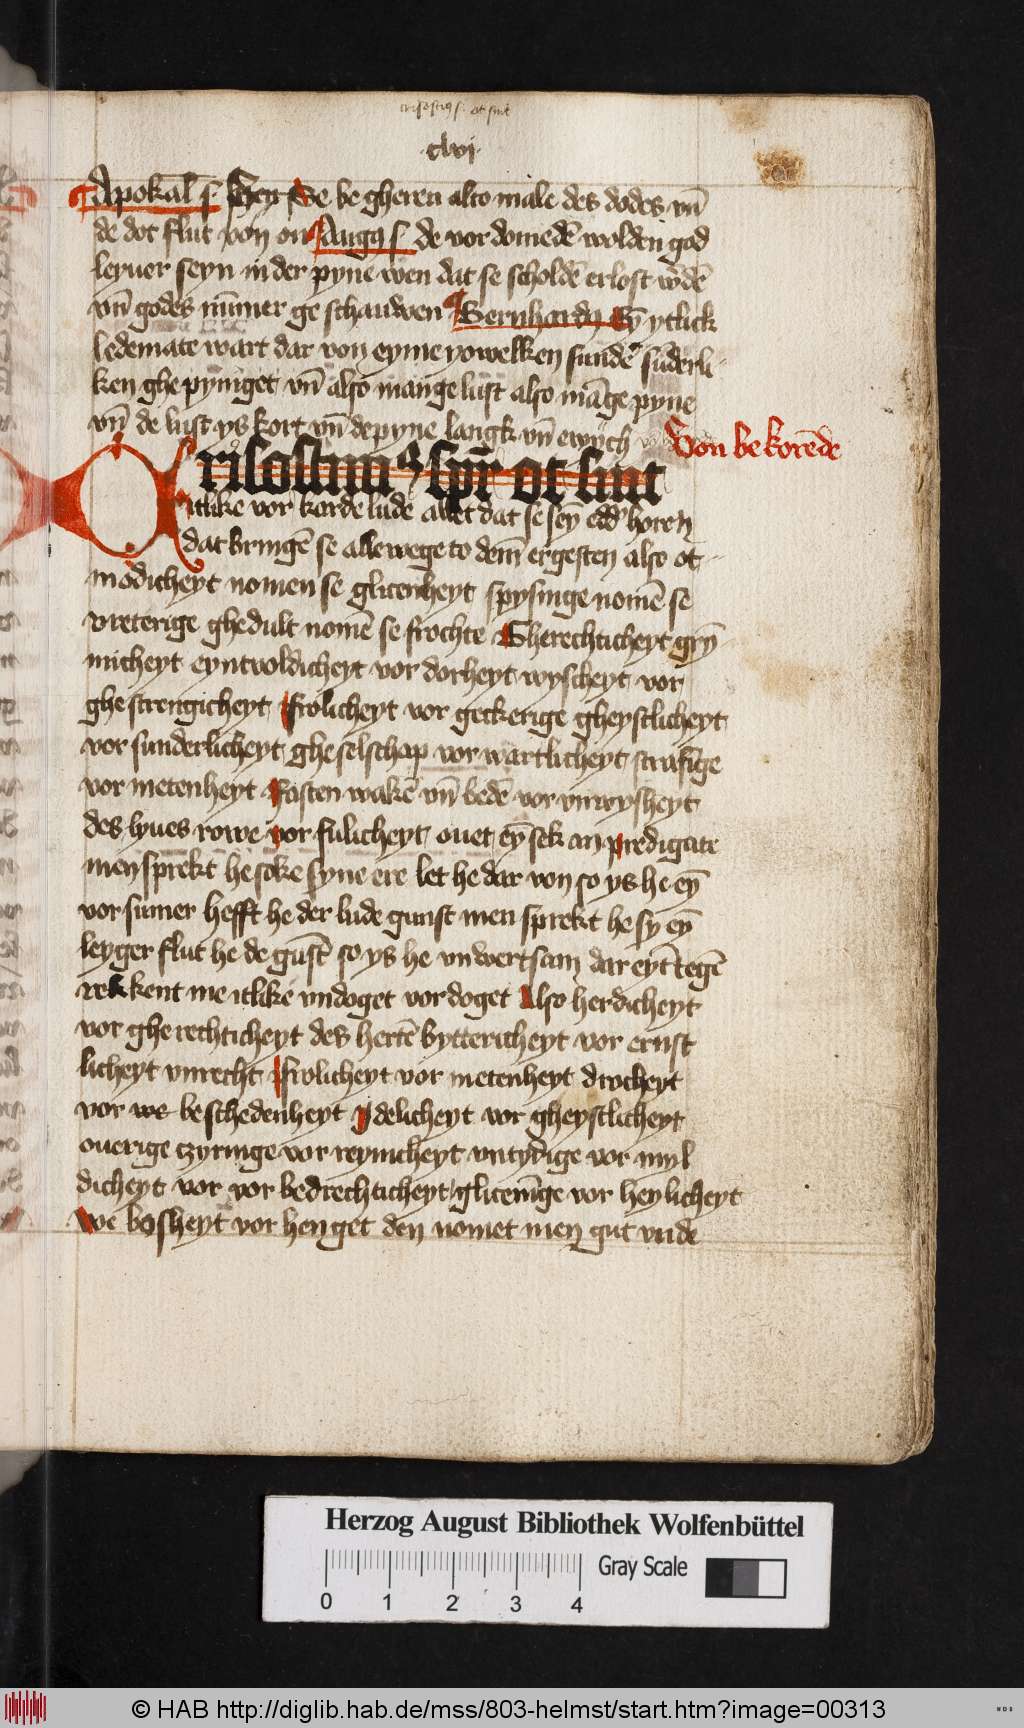 crisostim9 s. ot sint
·clvij·
Apokal s. Sey Se be gheren alto male des dodes vn̄
de dot flut von on Aug9 s de vordomedē wolden god
leyuer seyn in der pyne wen dat se scholdē erlost w̄dē
vn̄ godes nūmer ge schauwen Bernhard9 Eȳ ytlick
ledemate wart dar von eyme yowelken sundē sūderli
ken ghe pyniget vn̄ also mange lust also māge pyne
vn̄ de lust ys kort vn̄ de pyne langk vn̄ ewych
Von be korēde
Crisostimus spr̄ ot sint
itlike vor karde lude allet dat se seȳ edd' horen
dat bringē se alle wege to dem̄ ergesten also ot
modicheyt nomen se glicenheyt spysinge nomē se
vreterige ghedult nomē se frochte Gherechticheyt grȳ
micheyt eynvoldicheyt vor dorheyt wyscheyt vor
ghestrengicheyt frolicheyt vor geckerige gheystlicheyt
vor sunderlicheyt gheselschap vor wartlicheyt strafīge
vor metenheyt Fasten wakē vn̄ bedē vor vnwysheyt
des lyues rowe vor fulicheyt ouet eȳ sek an predigate
men sprekt he soke syne ere let he dar von so ys he eȳ
vorsumer hefft he der lude gunst men sprekt he sy eȳ
leyger flut he de gust̄ so ys he vnwertsam dar eyt̄tegē
rekkent me itlike vndoget vor doget Also herdicheyt
vor gherechticheyt des hertē byttericheyt vor ernst
licheyt vnrecht frolicheyt vor metenheyt drocheyt
vor we beschedenheyt Idelicheyt vor gheystlicheyt
ouerige czyringe vor reynicheyt vntydige vor myl
dicheyt vor vor bedrechticheyt glicenīge vor heylicheyt
we bosheyt vor henget den nomet men gut vnde
Herzog August Bibliothek Wolfenbüttel
Gray Scale
0 1 2 3 4
© HAB http://diglib.hab.de/mss/803-helmst/start.htm?image=00313